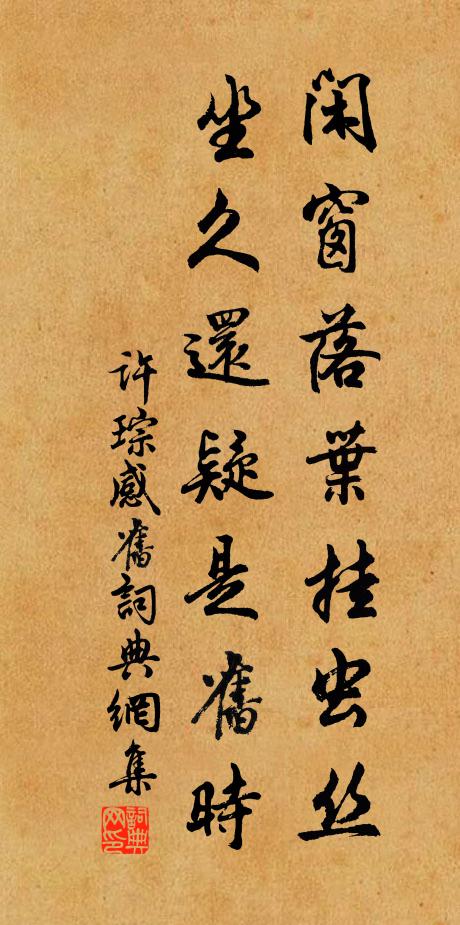 閑窗落葉挂虫丝
坐久還疑是舊時
許琮感舊詞典網集
詞典网印